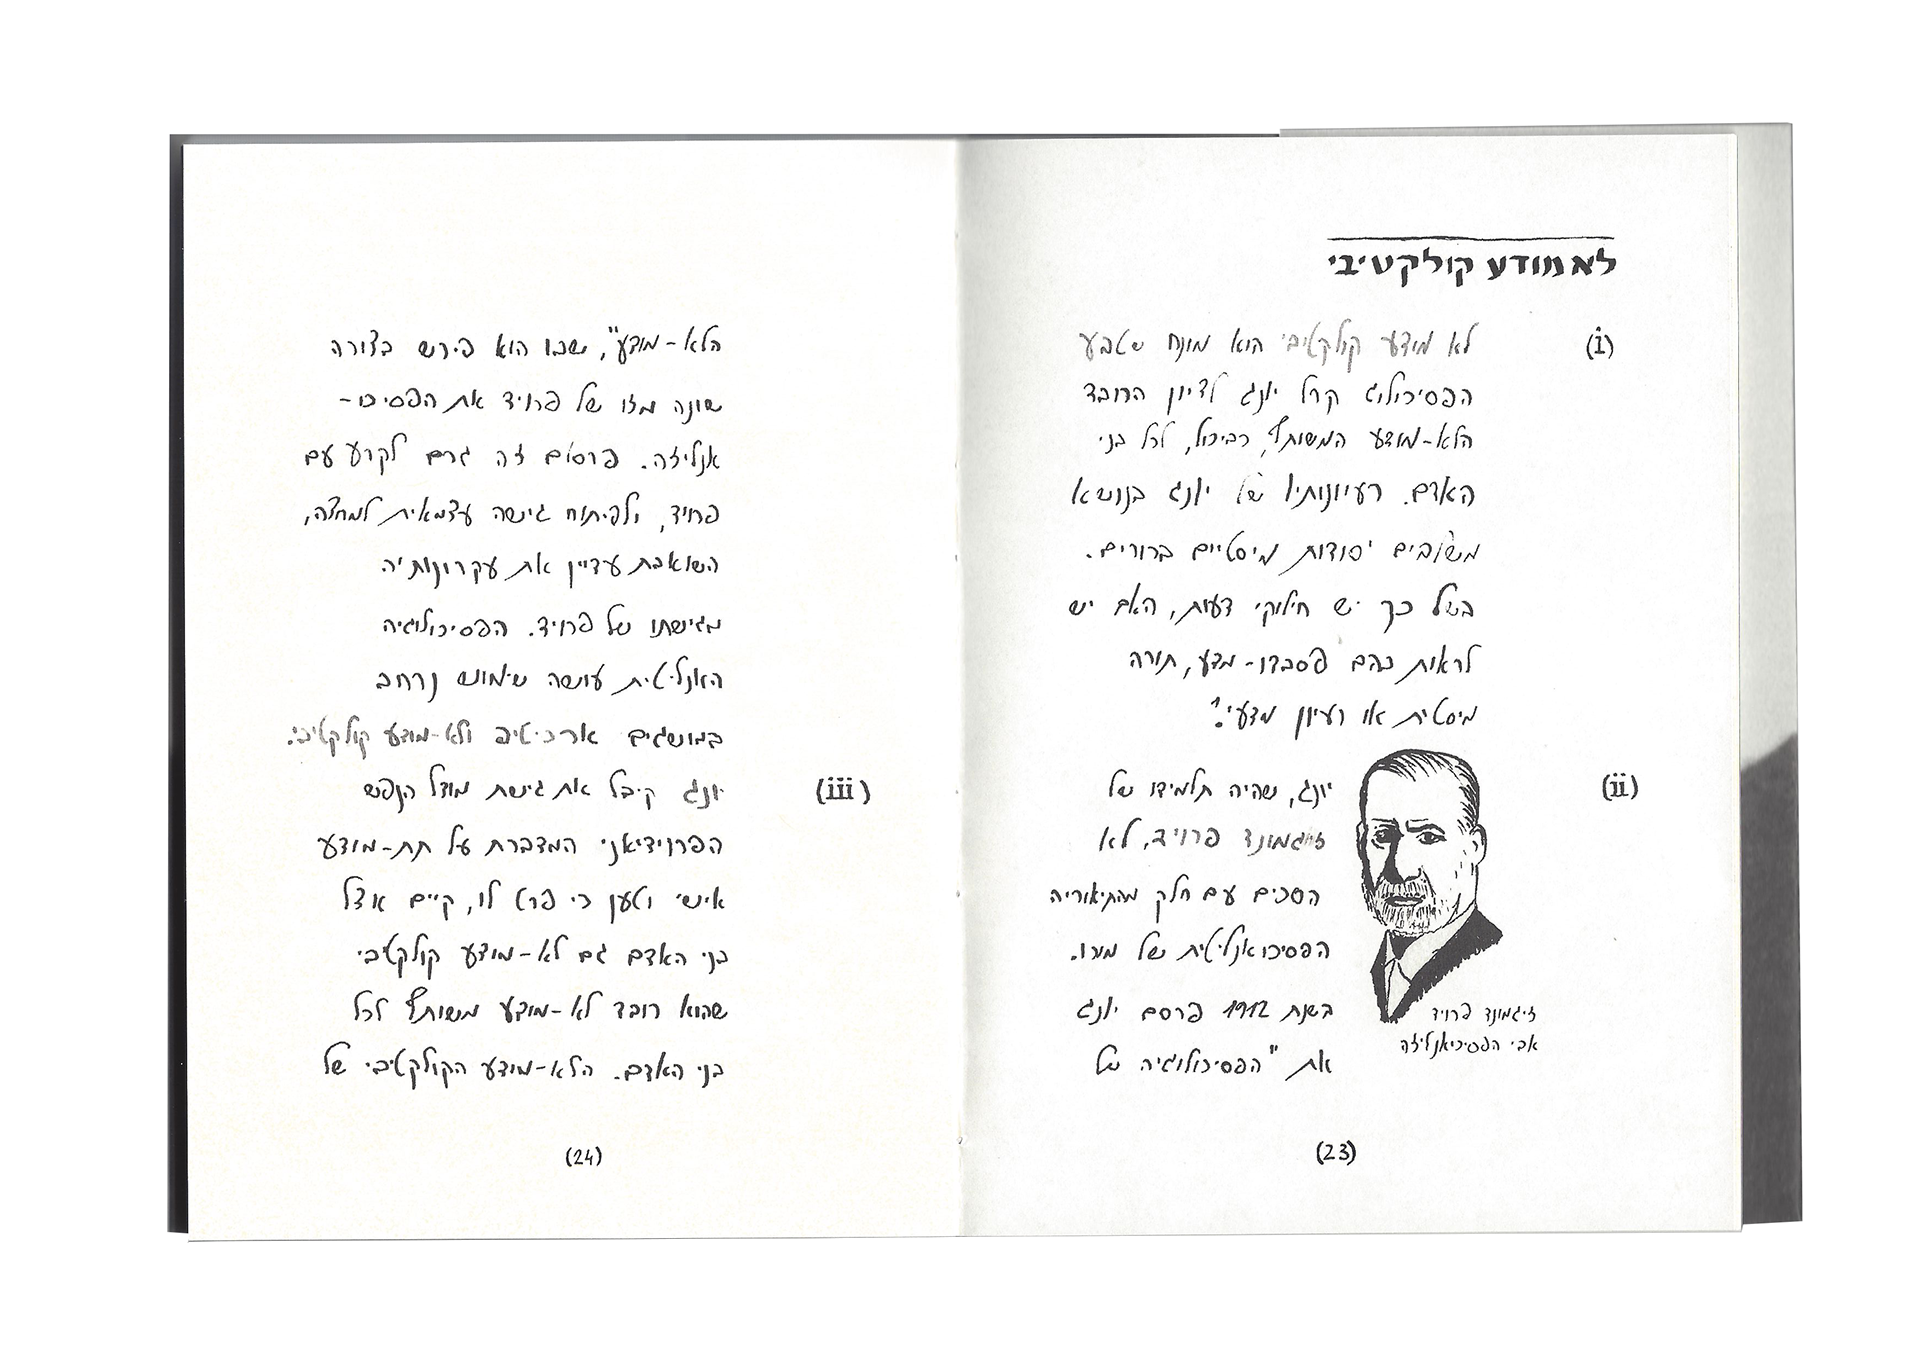 לא מודע קולקטיבי
(i)
לא מודע קולקטיבי הוא מונח שטבע
הפסיכולוג קרל יונג לדיון הרובד
הלא-מודע המשותף, כביכול, לכל בני
האדם. רעיונותיו של יונג בנושא
משובים יסודות מיסטיים ברורים.
בשל כך יש חילוקי דעות, האם יש
לראות בהם פסבדו-מדע, תורה
מיסטית או רעיון מדעי?
(ii)
יונג, שהיה תלמידו של
זיגמונד פרויד, לא
הסכים עם חלק מהתיאוריה
הפסיכואנליטית של מורו.
בשנת 1912 פרסם יונג
את "הפסיכולוגיה של
זיגמונד פרויד
אבי הפסיכואנליזה
(23)
הלא-מודע", שבו הוא פירש בצורה
שונה מזו של פרויד את הפסיכו-
אנליזה. פרסום זה גרם לקרע עם
פרויד, ולפיתוח גישה עצמאית למחצה,
השואבת עדיין את עקרונותיה
מגישתו של פרויד. הפסיכולוגיה
האנליטית עושה שימוש נרחב
במושגים ארכיטיפ ולא-מודע קולקטיבי.
(iii)
יונג קיבל את גישת מודל הנפש
הפרוידיאני המדברת על תת-מודע
אישי וטען כי פרט לו, קיים אצל
בני האדם גם לא-מודע קולקטיבי
שהוא רובד לא-מודע משותף לכל
בני האדם. הלא-מודע הקולקטיבי של
(24)